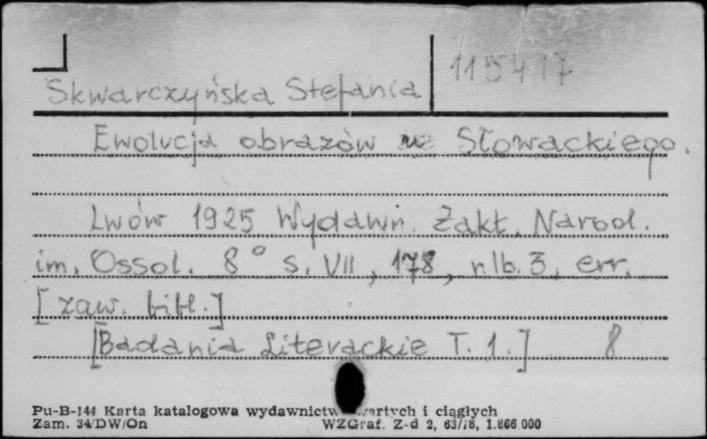 115417
Skwarczyńska Stefania
Ewolucja obrazów u Słowackiego.
Lwów 1925 Wydawn. Zakł. Narod.
im. Ossol. 8° s. VII, 178, nlb. 3, err.
[zaw. bibl.]
[Badania Literackie T. 1.] 8
Pu-B-144 Karta katalogowa wydawnictw zwartych i ciągłych
Zam. 34/DW/On WZGraf. Z-d 2, 63/78, 1.866.000